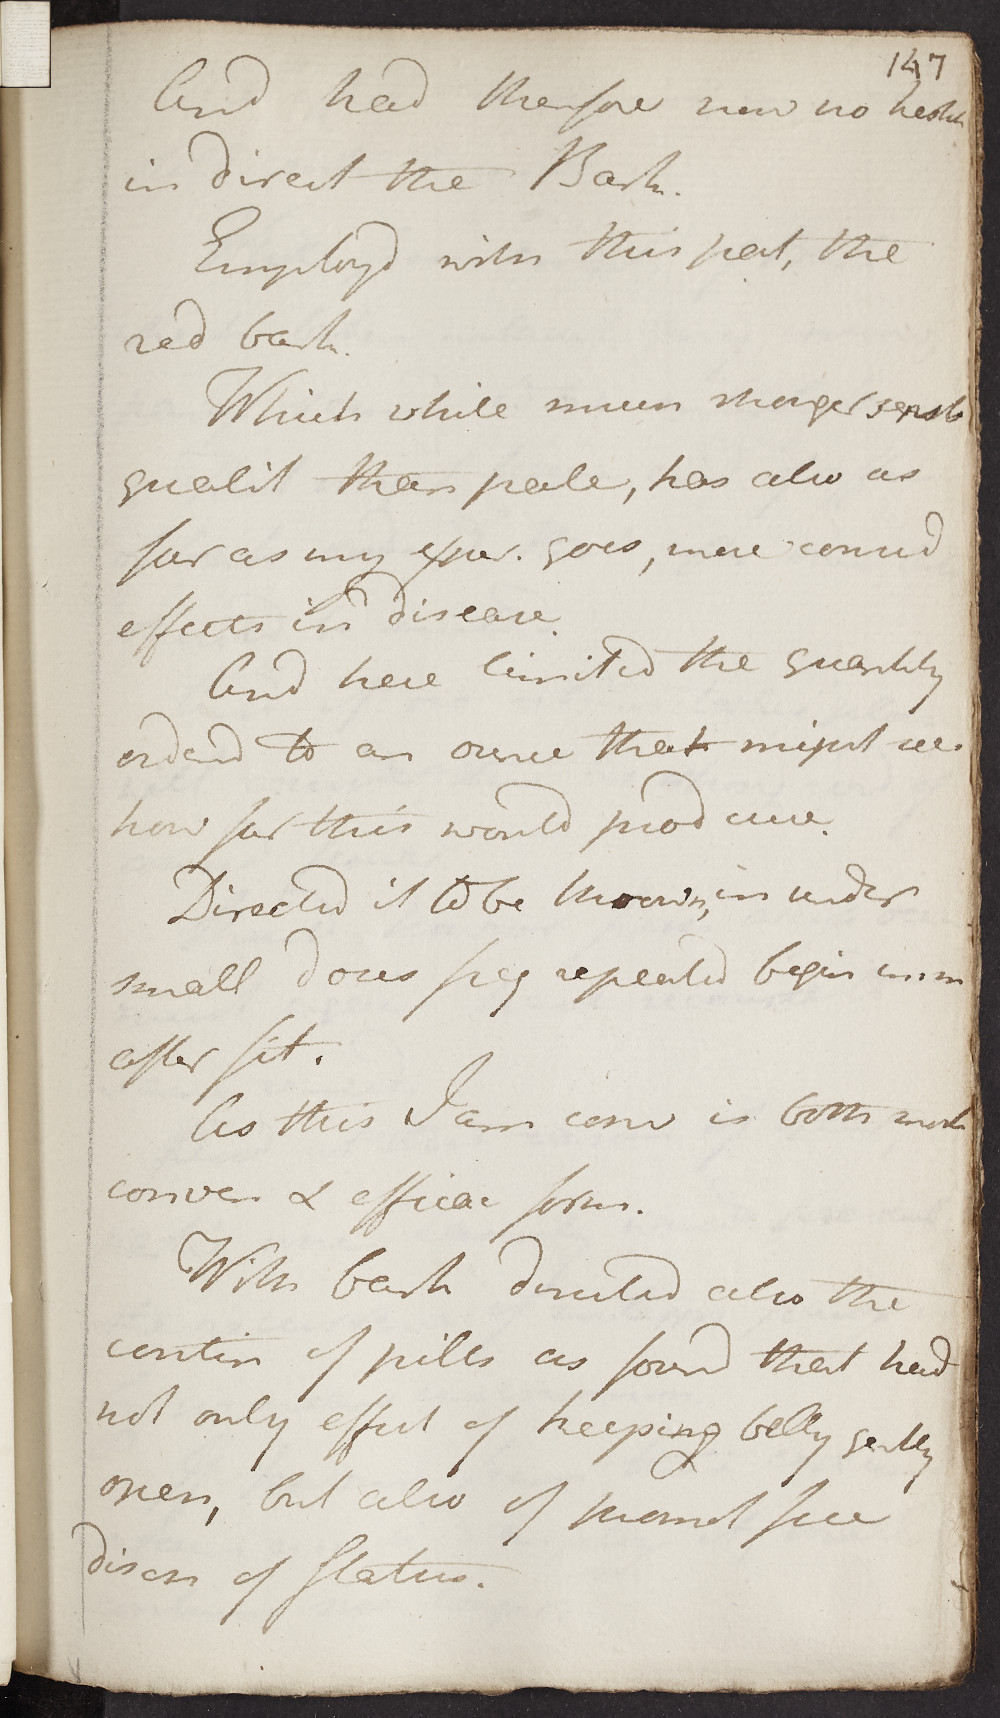 147
And had therefore now no hesit
in direct the Bark.
Employd with this pat, the
red bark.
Which while much stronger sensib
qualit than pale, has also as
far as my exper. goes, more consid
effects in disease.
And here limited the quantity
orderd to an ounce that might see
how far this would prod cure.
Directed it to be thrown, in under
small doses freq repeated begin imm
after fit.
As this I am conv is both most
conven & efficac form.
With bark directed also the
contin of pills as found that had
not only effect of keeping belly gently
open, but also of promot free
disch of flatus.